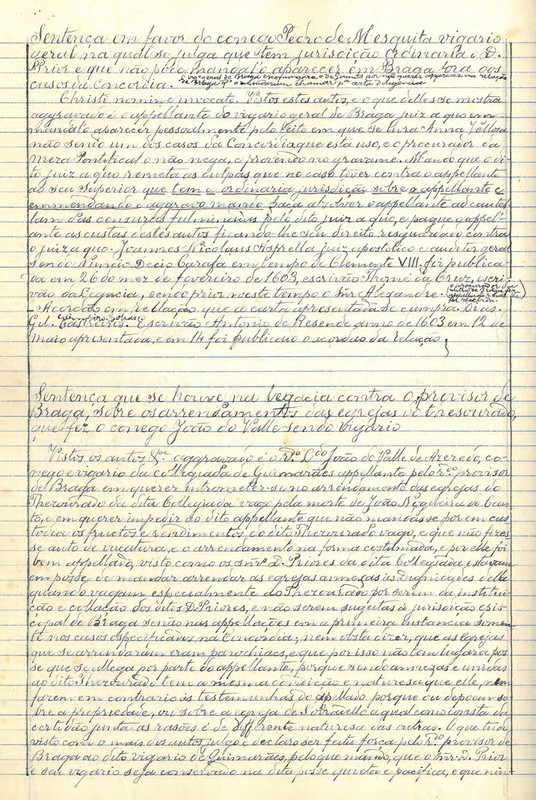 Sentença em favor do conego Pedro de Mesquita vigario
geral na qual se julga que tem jurisdição ordinaria o D.
Prior e que não póde mandal-o apparecer em Braga fóra dos
casos da Concordia.
Christi nomine invocato. Vistos estes autos, e o que delles se mostra
aggravado é o appellante do vigario geral de Braga juiz a quo em
mandal-o aparecer pessoalmente pelo feito em que se livra Anna Velloza
não sendo um dos casos da Concordia que esta uso, e o procurador da
Meza Pontifical o não nega, e provendo no gravame. Mando que o di-
to juiz a quo remeta as culpas que no caso tiver contra o appellante
ao seu Superior que tem a ordinaria jurisdição sobre o appellante e
emmendando o aggravo mando faça absolver o appellante ad caute-
lam das censuras fulminadas pelo dito juiz a quo, e pague o appel-
ante as custas destes autos ficando-lhe seu direito resguardado contra
o juiz a quo. Joannes Nicolaus Asprella juiz apostolico e auditor geral
sendo Nuncio Decio Carafa em tempo de Clemente VIII, foi publica-
da em 26 do mez de fevereiro de 1603, escrivão Thomé da Cruz, escri-
vão da Legacia, sendo prior neste tempo o Snr. Alexandre.
Acordão em rellação que a carta apresentada se cumpra. Dias.
Gil. Castilho. Escrivão Antonio de Resende anno de 1603 em 12 de
Maio apresentada, e em 14 foi publicado o acordão da relação
Sentença que se houve na legacia contra o provisor de
Braga, sobre os arrendamentos das egrejas do tresourado,
que fez o conego João do Valle sendo vigario
Vistos os autos &ra aggravado é o Rdo Ldo João do Valle de Azeredo, co-
nego e vigario da collegiada de Guimarães appellante pelo Rdo provisor
de Braga em querer intrometter-se no arrendamento das egrejas do
Thezourado da dita Collegiada vago pela morte de João Nogueira do Can-
to, e em querer impedir ao dito appellante que não mandasse por em cus-
todia os fructos e rendimentos do dito Thezourado vago, e que não fizes-
se auto de vacatura, e o arrendamento na forma costumada, e por elle foi
bem appellado, visto como os Snrs D. Priores da dita Collegiada estavam
em posse de mandar arrendar as egrejas annexas ás Dignidades della
quando vagam especialmente do Thezourado por serem da institui-
ção e collação dos ditos D. Priores, e não serem sugeitas á jurisdição epis-
copal de Braga senão nas appellações em a primeira instancia somen-
te nos casos especificados, na Concordia; nem obsta dizer, que as egrejas
que se arrendaram eram parochiaes, e que por isso não tem lugar a pos-
se que se allega por parte do appellante, porque sendo annexas e unidas
ao dito Thezourado tem a mesma condição e natureza que elle, nem
fazem em contrario ás testemunhas do apellado porque ou depoem so-
bre a propriedade, ou sobre a egreja de Sobradello a qual como consta da
certidão junta ás rasões é de differente natureza das outras. O que tudo
visto com o mais dos autos, julgo e declaro ser feita força pelo Rdo provisor de
Braga ao dito vigario de Guimarães, pelo que mando, que o Snr. D. Prior
e seu vigario seja conservado na dita posse quieta e pacifica, e que nin-